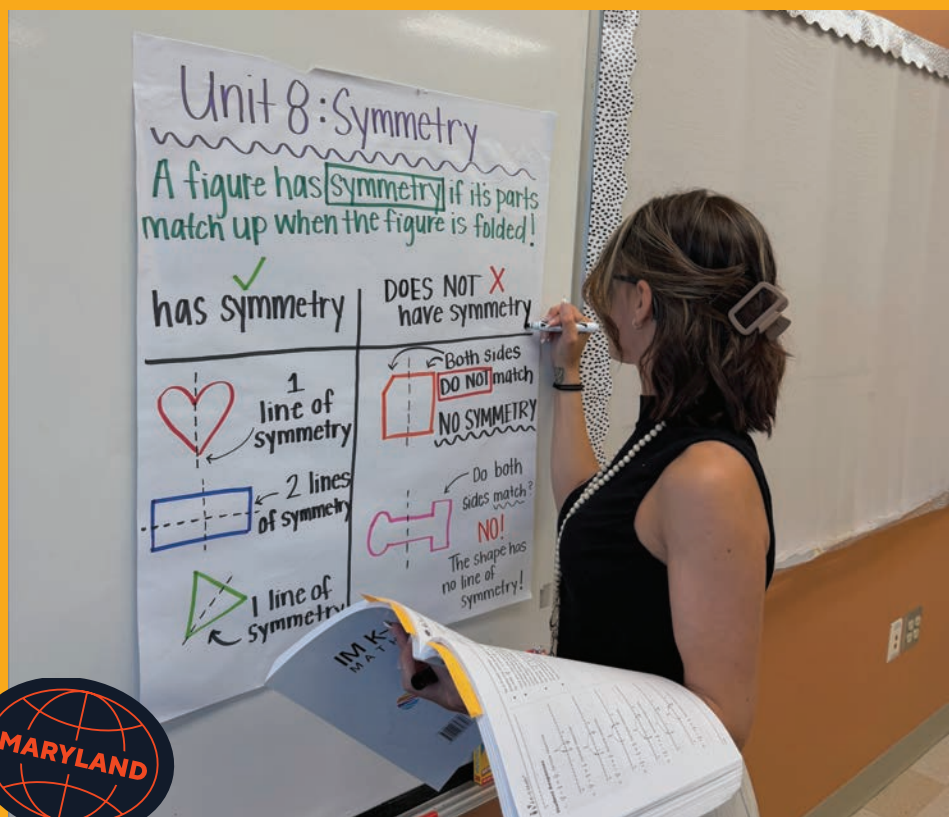 Unit 8: Symmetry
A figure has symmetry if it's parts
match up when the figure is folded!
has symmetry
DOES NOT
have symmetry
1
line of
symmetry
2 lines
of symmetry
1 line of
symmetry
Both sides
DO NOT match
NO SYMMETRY
Do both
sides match?
NO!
The shape has
no line of
symmetry!
IM K-
MATH
MARYLAND